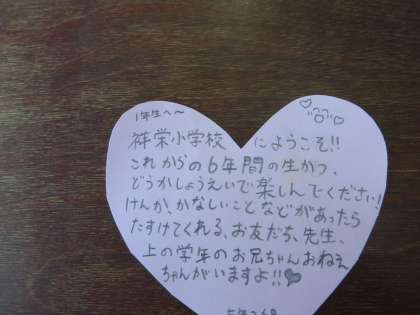 1年生へ〜
祥栄小学校にようこそ!!
これからの6年間の生かつ、
どうかしょうえいで楽しんでください!
けんか、かなしいことなどがあったら
たすけてくれる、お友だち、先生、
上の学年のお兄ちゃんおねえ
ちゃんがいますよ!!